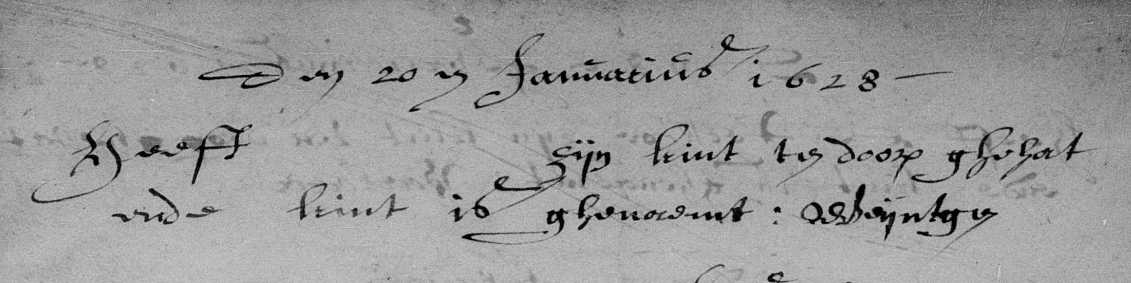 Den 20 en Januarius 1628
Heeft zijn kint te doop ghehat
ende kint is ghenaemt : Weijntge